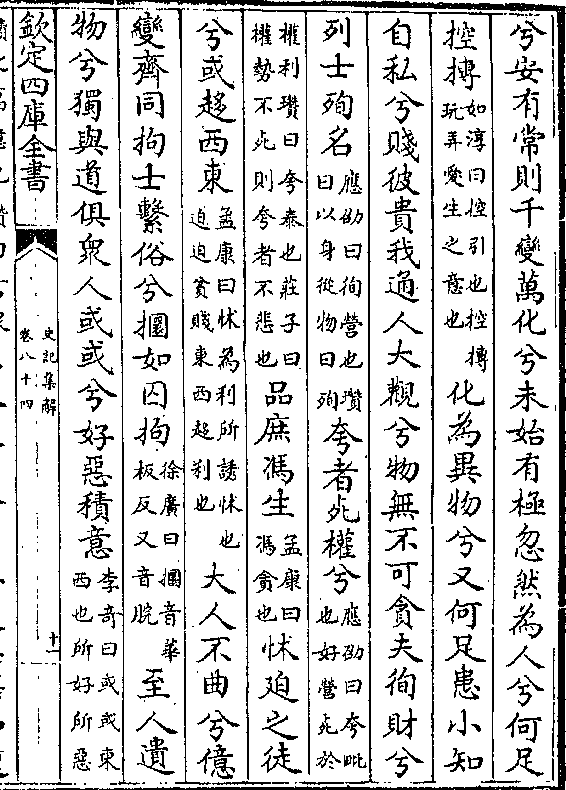 兮安有常則千變萬化兮未始有極忽然為人兮何足
控摶
如淳曰控引也控摶
玩弄愛生之意也
化為異物兮又何足患小知
自私兮賤彼貴我通人大觀兮物無不可貪夫徇財兮
列士殉名
應劭曰徇營也瓚
曰以身從物曰殉
夸者死權兮
應劭曰夸毗
也好營死於
權利瓚曰夸泰也莊子曰
權勢不死則夸者不悲也
品庶馮生
孟康曰
馮貪也
怵迫之徒
兮或趨西東
孟康曰怵為利所誘怵也
迫迫貧賤東西趨利也
大人不曲兮億
變齊同拘士繫俗兮攌如囚拘
徐廣曰攌音華
板反又音脘
至人遺
物兮獨與道俱衆人或或兮好惡積意
李奇曰或或東
西也所好所惡
欽定四庫全書
史記集解
卷八十四
十一